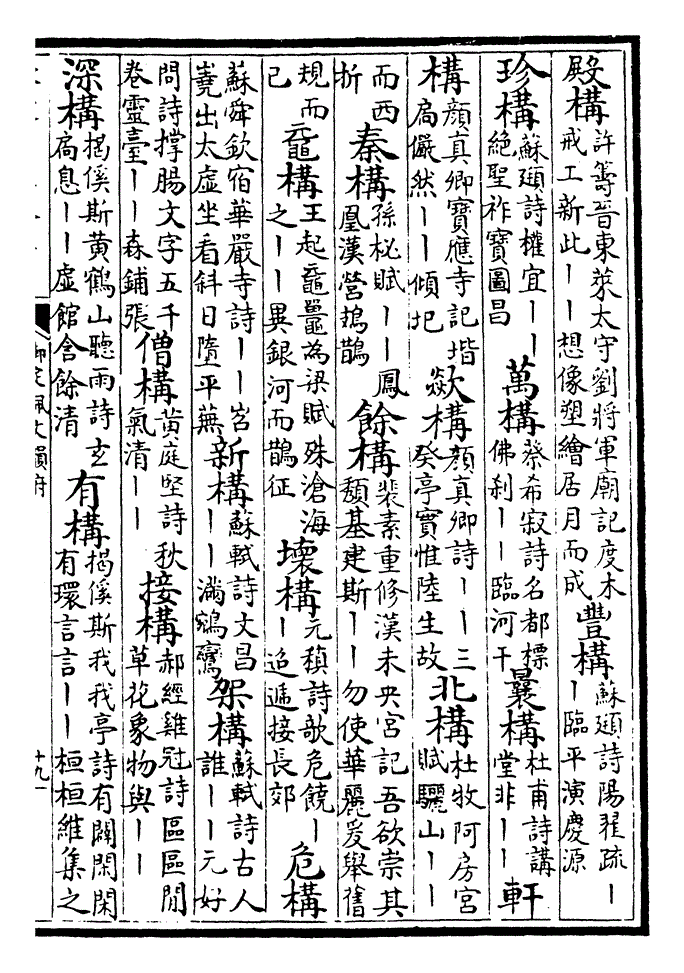 殿構許籌晉東萊太守劉將軍廟記度木戒工新此丨丨想像塑繪居月而成豐構蘇頲詩陽翟疏丨丨臨平演慶源
珍構蘇頲詩權宜丨丨絕聖祚寶圖昌萬構蔡希寂詩名都標佛刹丨丨臨河干曩構杜甫詩講堂非丨丨軒
構顔真卿寶應寺記堦扃儼然丨丨傾圮歘構顔真卿詩丨丨三癸亭實惟陸生故北構杜牧阿房宮賦驪山丨丨
而西折秦構孫柲賦丨丨鳳凰漢營鳷鵲餘構裴素重修漢未央宮記吾欲崇其頽基建斯丨丨勿使華麗爰舉舊
規而已黿構王起黿鼉為梁賦殊滄海之丨丨異銀河而鵲征壞構元稹詩歌危饒丨丨追遞接長郊危構
蘇舜欽宿華嚴寺詩丨丨岧嶤出太虛坐看斜日墮平蕪新構蘇軾詩文昌丨丨滿鵷鸞架構蘇軾詩古人誰丨丨元好
問詩撑腸文字五千卷靈臺丨丨森鋪張僧構黄庭堅詩秋氣清丨丨接構郝經雞冠詩區區閒草花象物與丨丨
深構揭傒斯黄鶴山聽雨詩玄扃息丨丨虛館含餘清有構揭傒斯我我亭詩有闢閑閑有環言言丨丨桓桓維集之
御定佩文韻府
十九